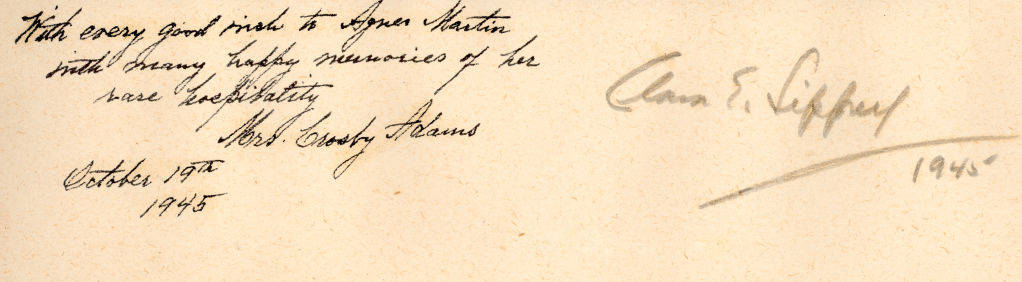 With every good wish to Agnes Martin
with many happy memories of her
rare hospitality
Mrs. Crosby Adams
October 19th
1945
Clara E. Sipprell
1945